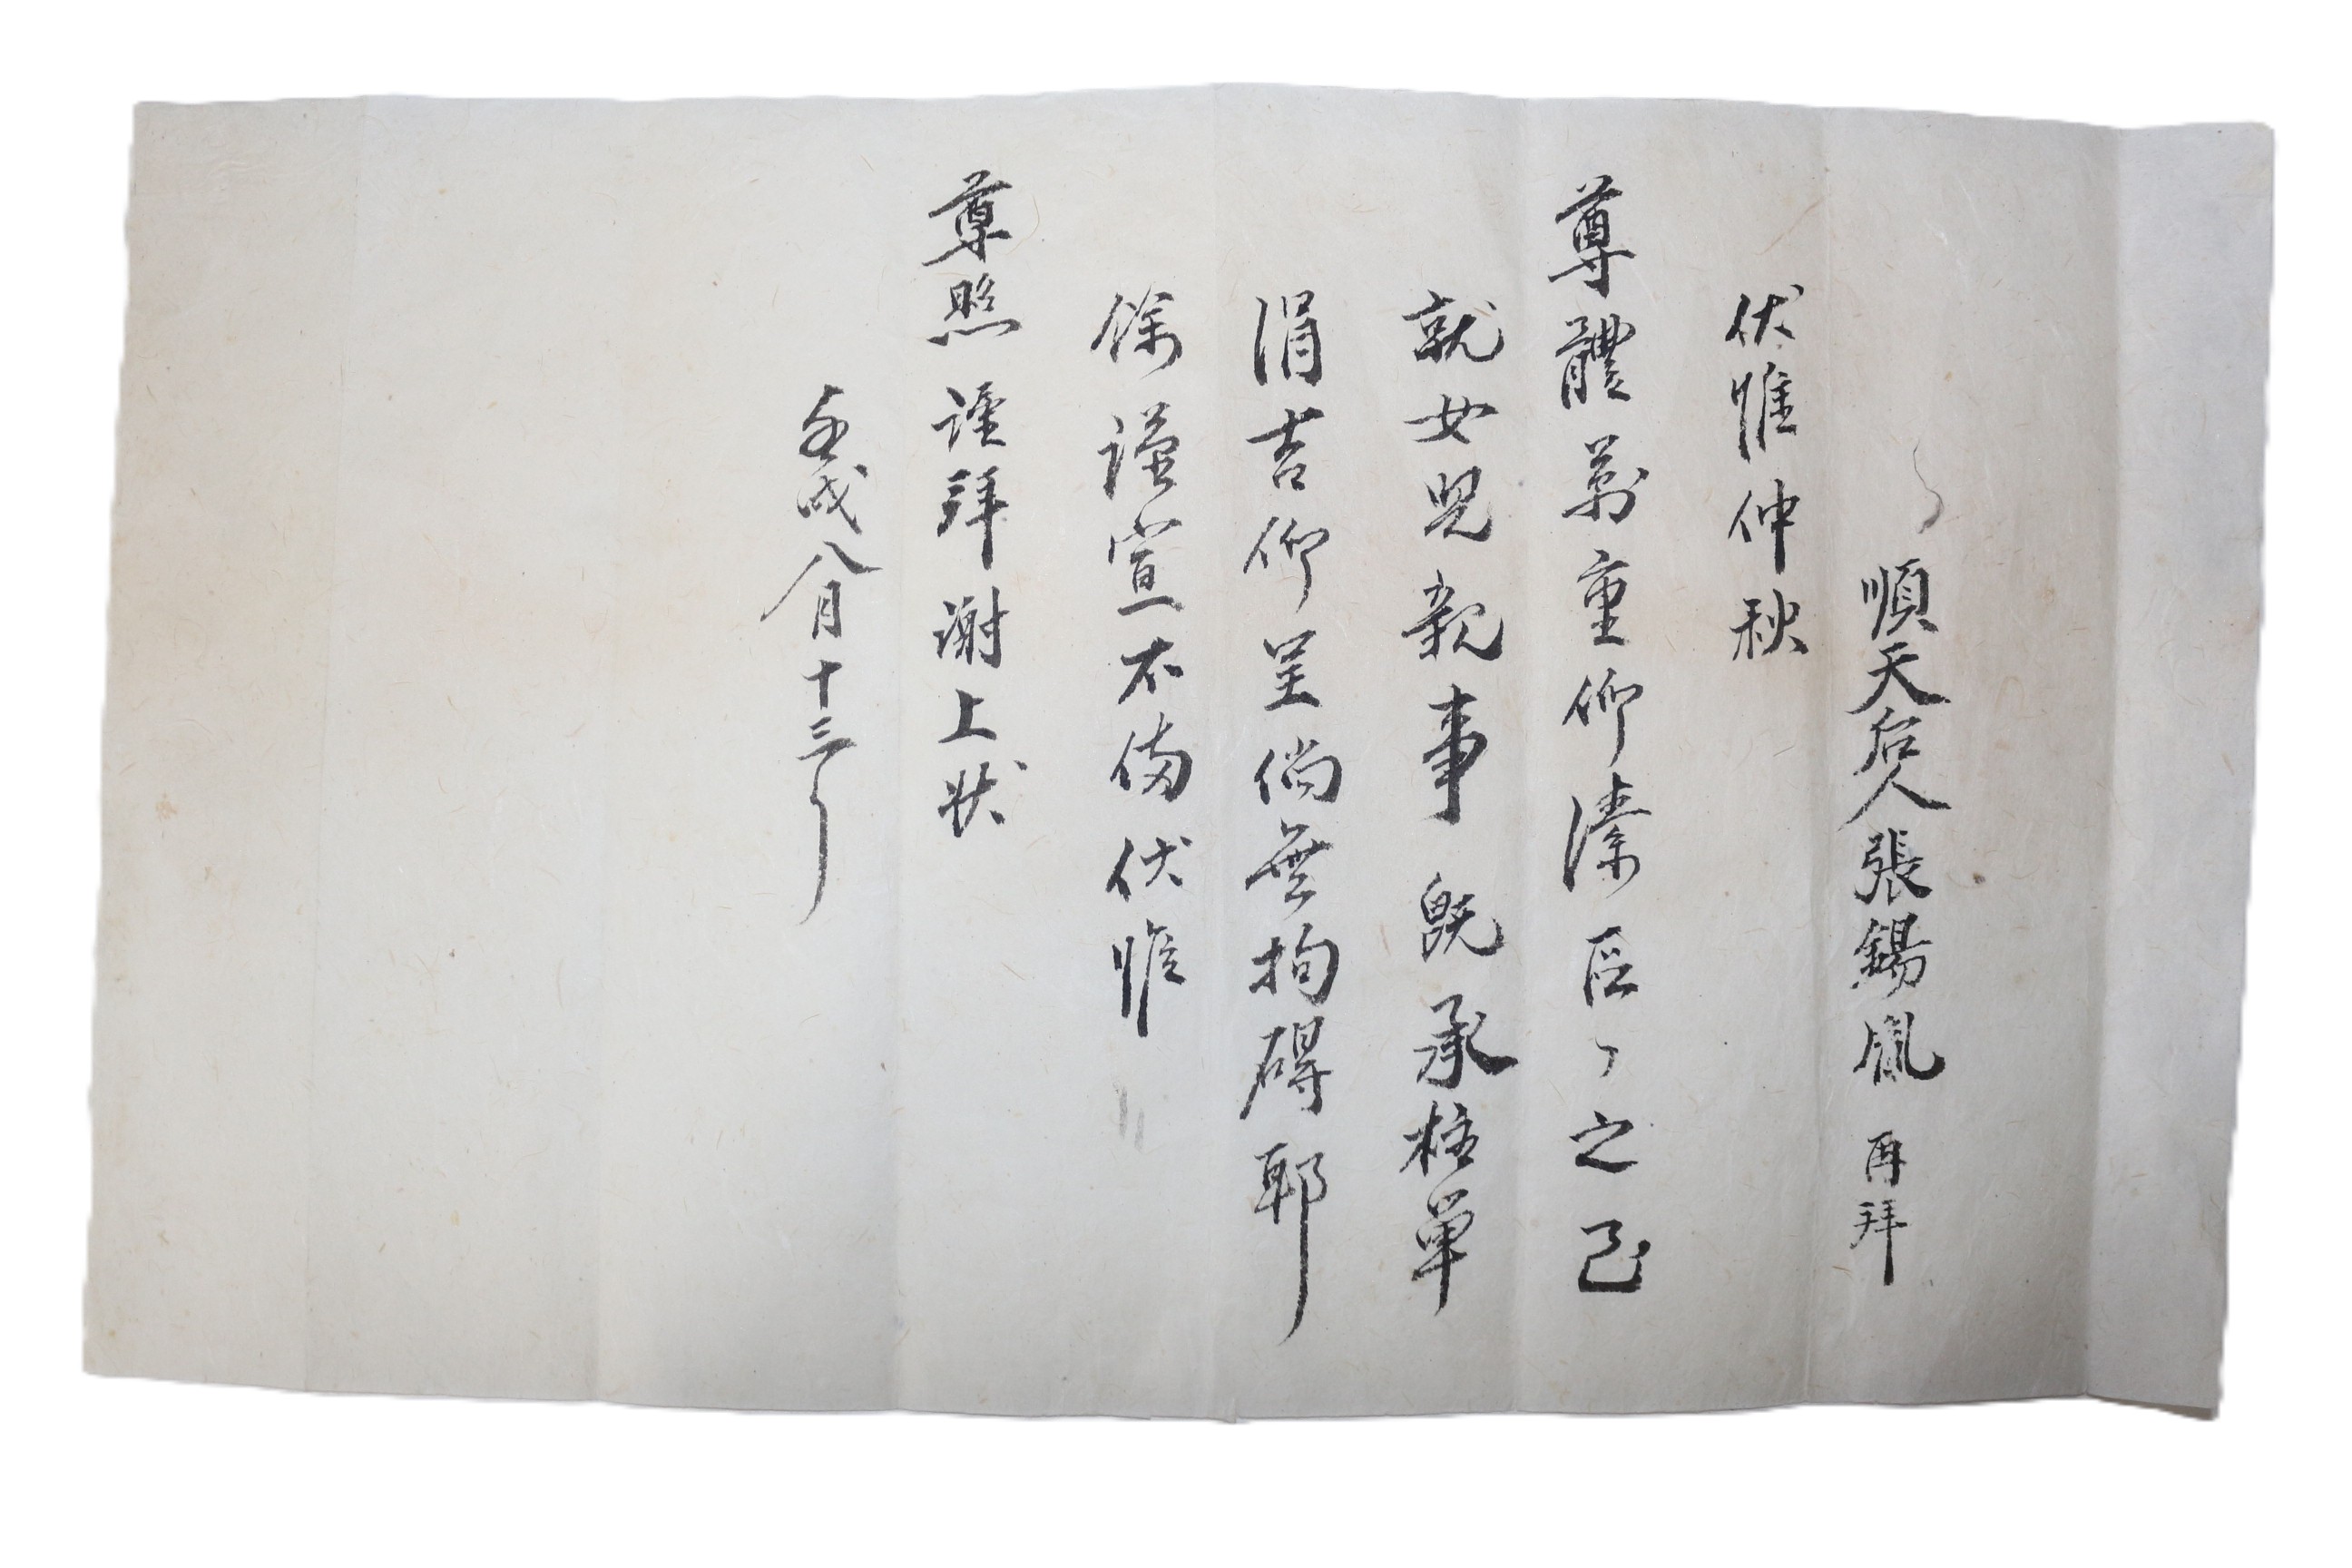 順天后人張錫胤 再拜
伏惟仲秋
尊體萬重仰溱區〻之至
就女兒親事既承柱單
涓吉仰呈倘無拘碍耶
餘謹宣不備伏惟
尊照 謹拜謝上狀
壬戌八月十三日